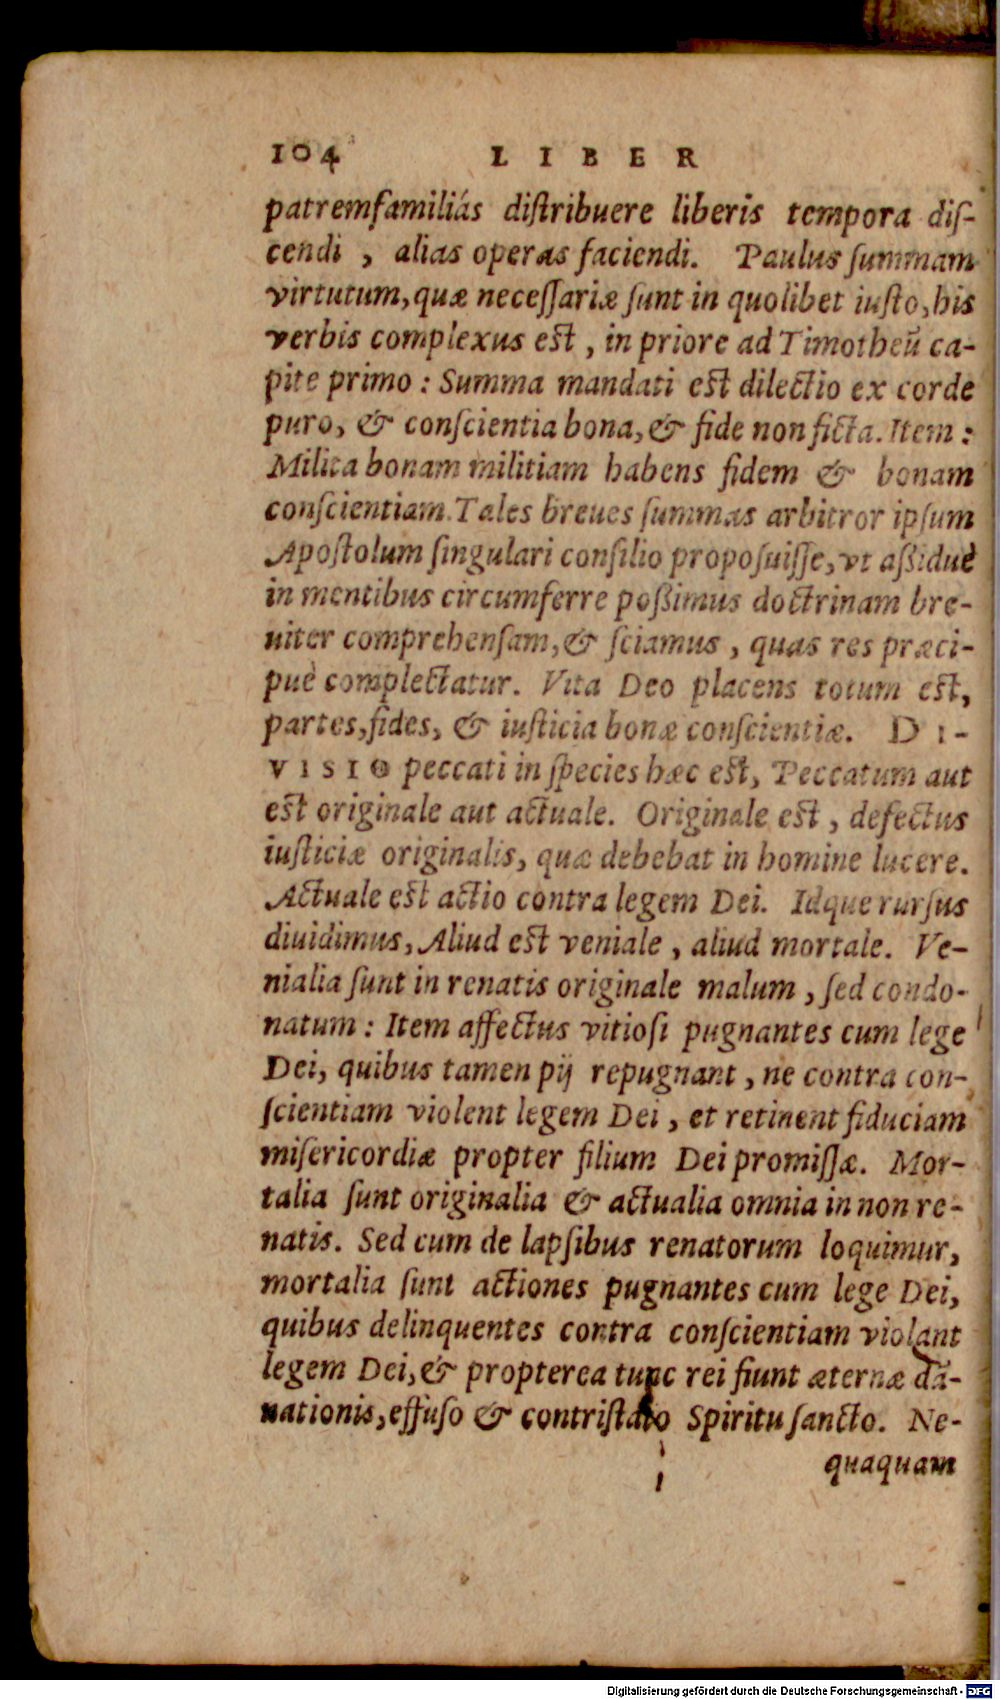 104 LIBER
patremfamiliás diſtribuere liberis tempora diſ-
cendi, alias operas faciendi. Paulus ſummam
virtutum, quæ neceſſariæ ſunt in quolibet iuſto, his
verbis complexus eſt, in priore ad Timotheū ca-
pite primo: Summa mandati eſt dilectio ex corde
puro, & conſcientia bona, & fide non ficta. Item:
Milita bonam militiam habens fidem & bonam
conſcientiam. Tales breues ſummas arbitror ipſum
Apoſtolum ſingulari conſilio propoſuiſſe, vt aßiduè
in mentibus circumferre poßimus doctrinam bre-
uiter comprehenſam, & ſciamus, quas res præci-
puè complectatur. Vita Deo placens totum eſt,
partes, fides, & iuſticia bonæ conſcientiæ. DI-
VISIO peccati in ſpecies hæc eſt, Peccatum aut
eſt originale aut actuale. Originale eſt, defectus
iuſticiæ originalis, quæ debebat in homine lucere.
Actuale eſt actio contra legem Dei. Idque rurſus
diuidimus, Aliud eſt veniale, aliud mortale. Ve-
nialia ſunt in renatis originale malum, ſed condo-
natum: Item affectus vitioſi pugnantes cum lege
Dei, quibus tamen pij repugnant, ne contra con-
ſcientiam violent legem Dei, et retinent fiduciam
miſericordiæ propter filium Dei promiſſæ. Mor-
talia ſunt originalia & actualia omnia in non re-
natis. Sed cum de lapſibus renatorum loquimur,
mortalia ſunt actiones pugnantes cum lege Dei,
quibus delinquentes contra conſcientiam violant
legem Dei, & propterea tunc rei fiunt æternæ dā-
nationis, effuſo & contriſtato Spiritu ſancto. Ne-
quaquam
Digitalisierung gefördert durch die Deutsche Forschungsgemeinschaft - DFG